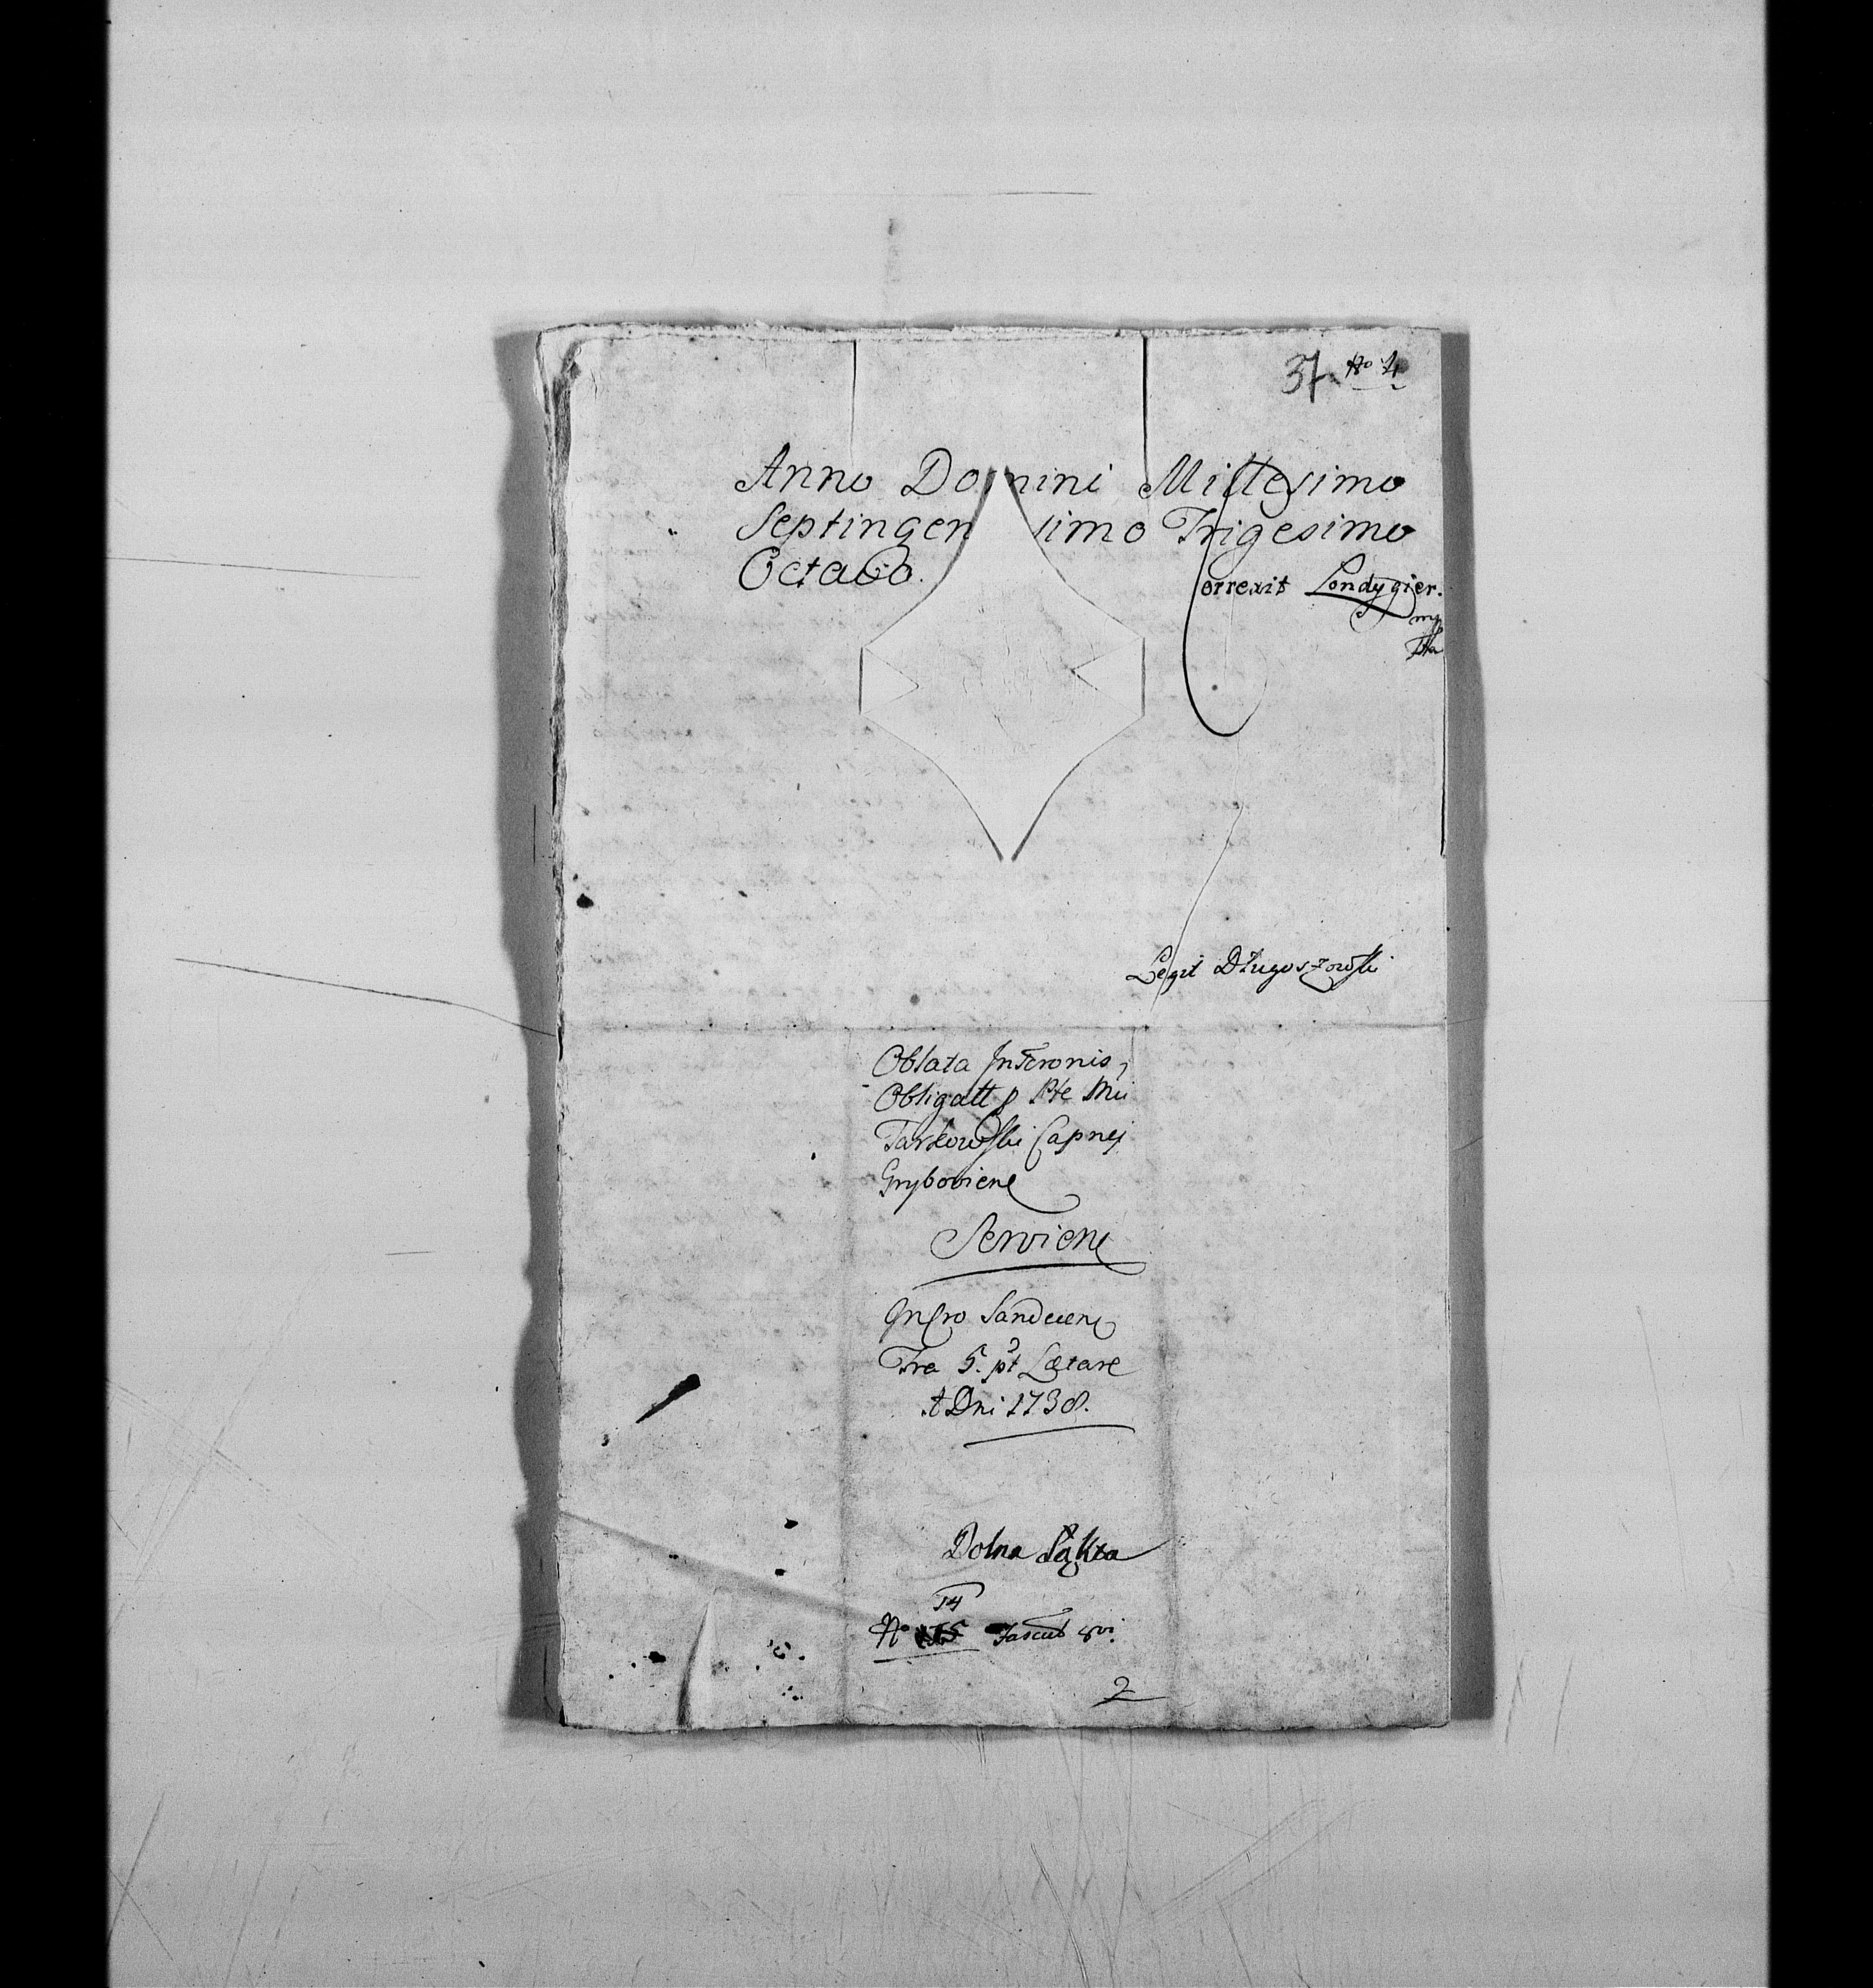 37. No 4
Anno Domini Millesimo
Septingen simo Trigesimo
Octavo.
Correxit Londygier.
mp
Legit Długoszowski
Oblata Inscronis,
Obligatt p Pte Mci
Tarkowski Capnej
Grybovien
Servien
In Cro Sandecen
Fra 5. pt Lætare
A Dni 1738.
Dolna Łąkta
14
No 15 Fascul 4vi.
2